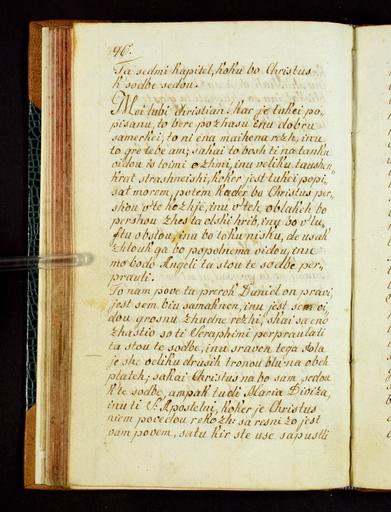 96.
Ta sedmi kapitel, koku bo Christus
k sodbe sedou.
Moi lubi christiani kar je tukei po-
pisanu, to bere po zhasu inu dobru
samerkei, to ni ena maihena rezh, inu
to gre tebe ami; sakai to bosh ti na tanku
vidou is toimi ozhmi, inu veliku taushen-
krat strashneishi, koker jest tukei popi-
sat morem, potem kader bo Christus per-
shou v te kozhje, inu v teh oblakeh bo
pershou zhes ta olski hrib, inu bo v lu-
ftu obstou, inu bo toku nisku, de usak
zhlouk ga bo popolnema vidou, inu
mo bodo Angeli ta stou te sodbe per-
prauli.
To nam pove ta prerok Daniel on pravi
jest sem biu samaknen, inu jest sem vi-
dou grosnu zhudne rezhi, skai sa eno
zhastio so ti Seraphimi perpraulali
ta stou te sodbe, inu sraven tega stola
je she veliku drusih tronou blu na obeh
plateh; sakai Christus na bo sam sedou
k te sodbe, ampak tudi Maria Diviza,
inu ti S. Apostelni, koker je Christus
niem povedou rekozh: sa resnizo jest
vam povem, sa tu kir ste use sapustli